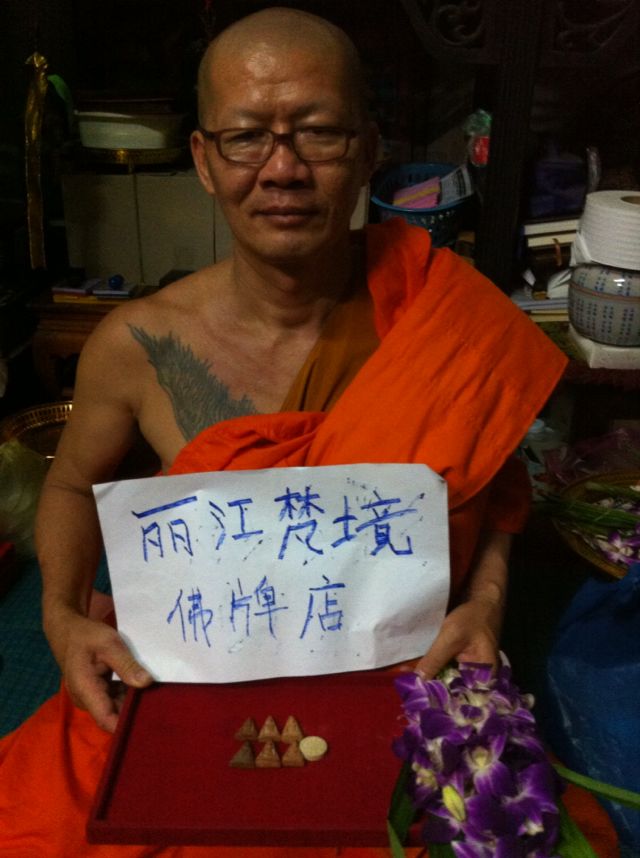 丽江梵境
佛牌店